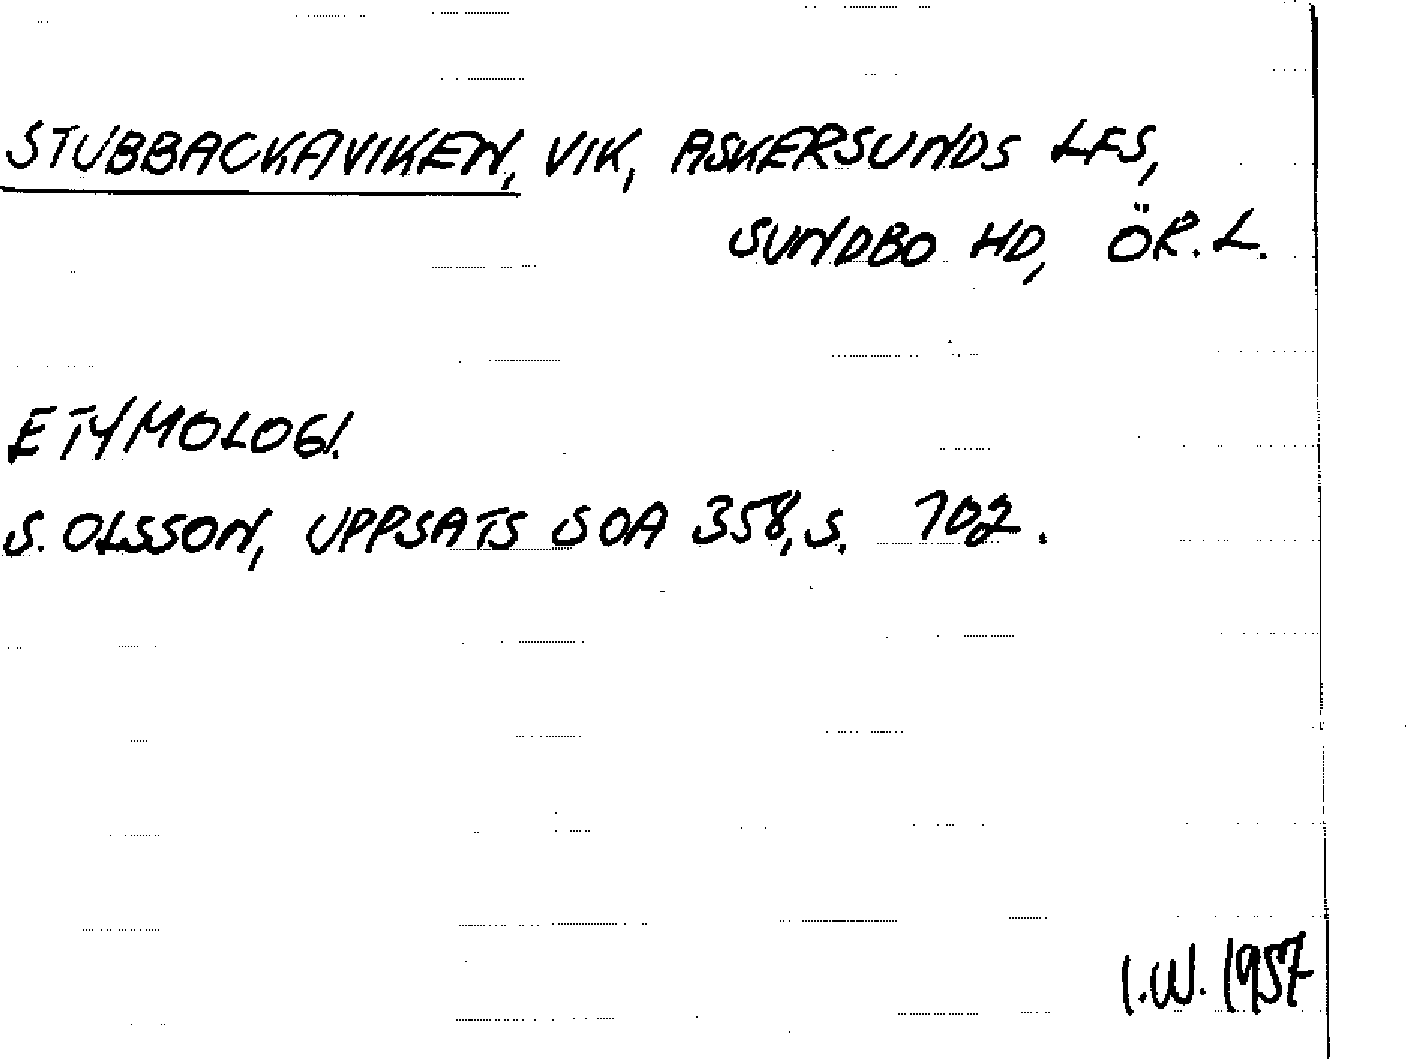 STUBBACKAVIKEN, VIK, ASKERSUNDS LFS,
SUNDBO HD, ÖR. L.
ETYMOLOGI.
S. OLSSON, UPPSATS SOA 358, S. 102.
I.W. 1957